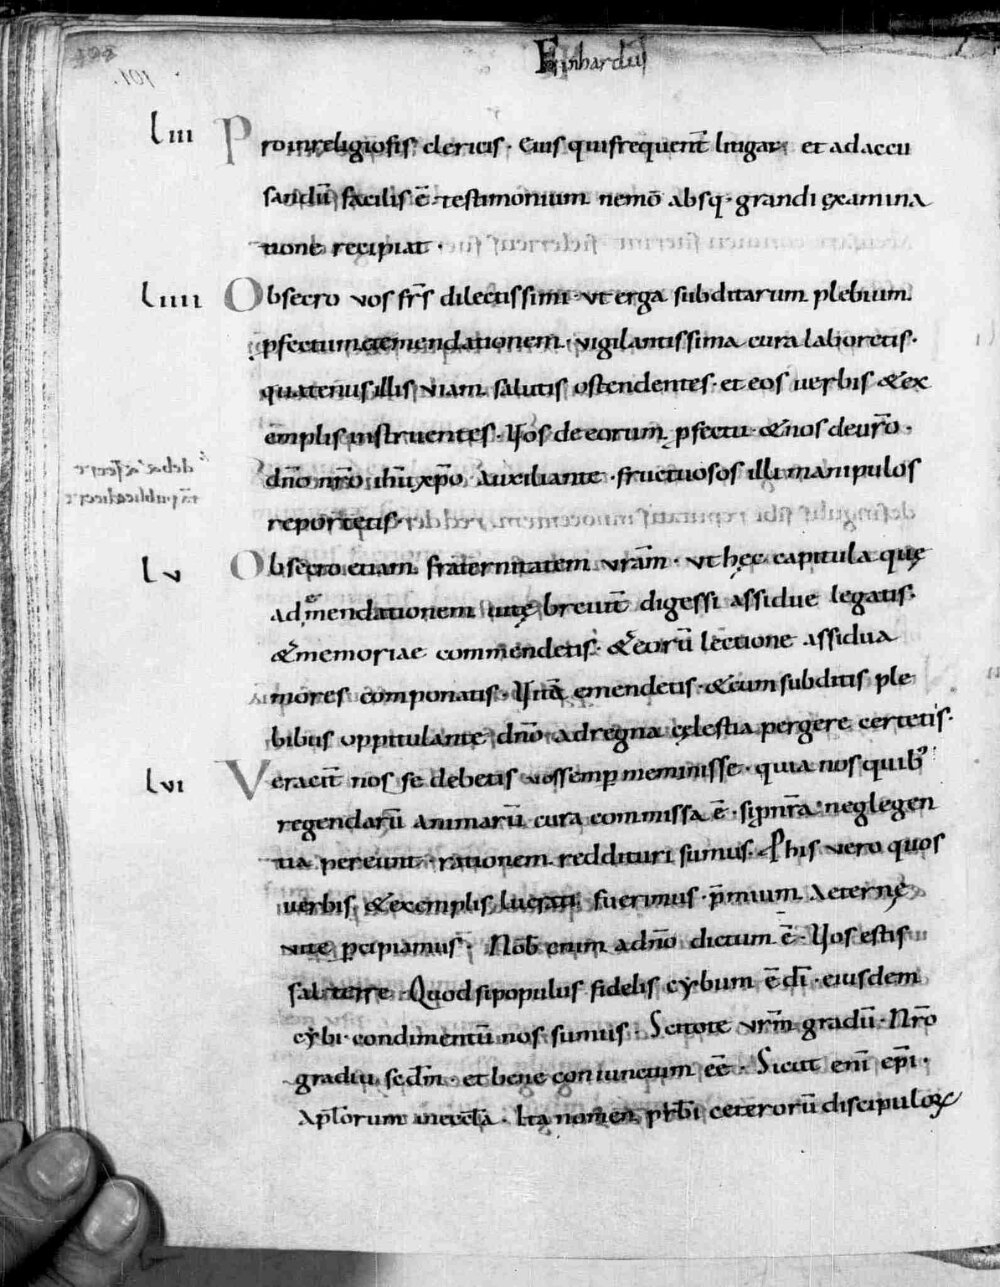 Einhardus
101.
liii Pro inreligiosis clericis · Eius qui frequent̄ litigat · et ad accu
sandū facilis ē · testimonium nemō absq · grandi examina
tione recipiat ·
liiii Obsecro vos fr̄s dilectissimi · vt erga subditarum plebium
ꝓfectum et emendationem · vigilantissima cura laboretis ·
quatenus illis viam salutis ostendentes · et eos uerbis & ex
emplis instruentes · Vos de eorum ꝓfectu · & nos de ur̄o ·
dn̄o nr̄o ihū xp̄o · Auxiliante · fructuosos illi manipulos
reportetis ·
lv Obsecro etiam fraternitatem vrām · vt hęc capitula quę
ad emendationem uitę breuit̄ digessi assidue legatis ·
& memoriae commendetis · & eorū lectione assidua
mores componatis · Vitā emendetis · & cum subditis ple
bibus oppitulante dn̄o ad regna cęlestia pergere certetis ·
lvi Veracit̄ nos se debetis vos semꝑ meminisse · quia nos quib᾽
regendarū animarū cura commissa ē · si ꝑ nr̄a neglegen
tia pereunt · rationem reddituri sumus · P his vero quos
uerbis & exemplis lucrati fuerimus · p̄mium Aeternę
vitę ꝑcipiamus · Nob̄ enim a dn̄o dictum ē · Vos estis
sal terre · Quod si populus fidelis cybum ē dī · eiusdem
cybi · condimentū nos sumus · Scitote vrm̄ gradū · Nr̄o
gradui scd̄m · et bene coniunctum eē · Sicut enī ep̄i ·
Ap̄lorum in eccl̄a · Ita nomen prb̄i ceterorū discipuloꝝ